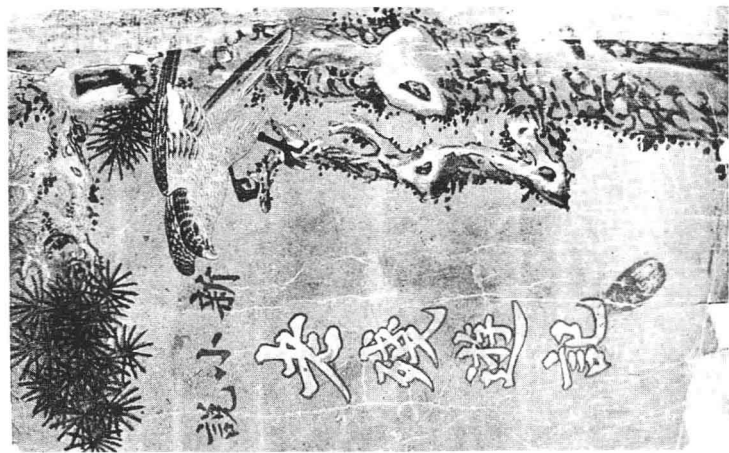 新小說
老殘遊記